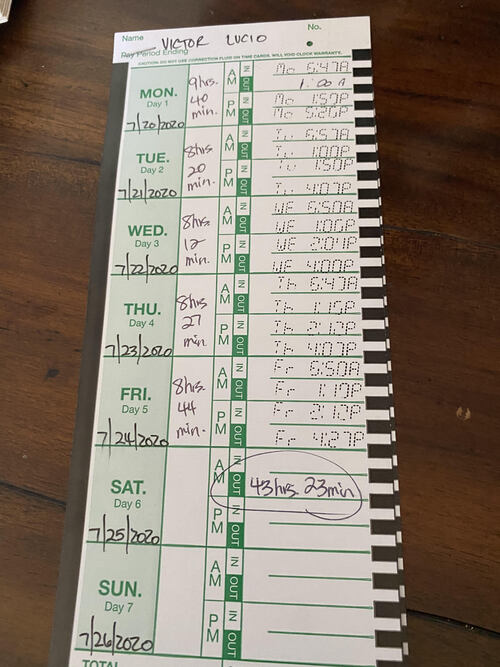 Name VICTOR LUCIO No.
Pay Period Ending
CAUTION: DO NOT USE CORRECTION FLUID ON TIME CARDS. WILL VOID CLOCK WARRANTY.
MON.
Day 1
7/20/2020
9hrs.
40
min.
AM IN Mo 6:47A
OUT 1:00
PM IN Mo 1:59P
OUT Mo 5:26P
TUE.
Day 2
7/21/2020
8hrs
20
min.
AM IN Tu 6:57A
OUT Tu 1:00P
PM IN Tu 1:50P
OUT Tu 4:07P
WED.
Day 3
7/22/2020
8hrs.
12
min.
AM IN WE 6:50A
OUT WE 1:06P
PM IN WE 2:04P
OUT WE 4:00P
THU.
Day 4
7/23/2020
8hrs
27
min.
AM IN Th 6:47A
OUT Th
PM IN Th
OUT Th 4:07P
FRI.
Day 5
7/24/2020
8hrs.
44
min.
AM IN Fr 6:50A
OUT Fr
PM IN Fr
OUT Fr 4:27P
SAT.
Day 6
7/25/2020
AM IN
OUT 43 hrs. 23 min
PM IN
OUT
SUN.
Day 7
7/26/2020
AM IN
OUT
PM IN
OUT
TOTAL